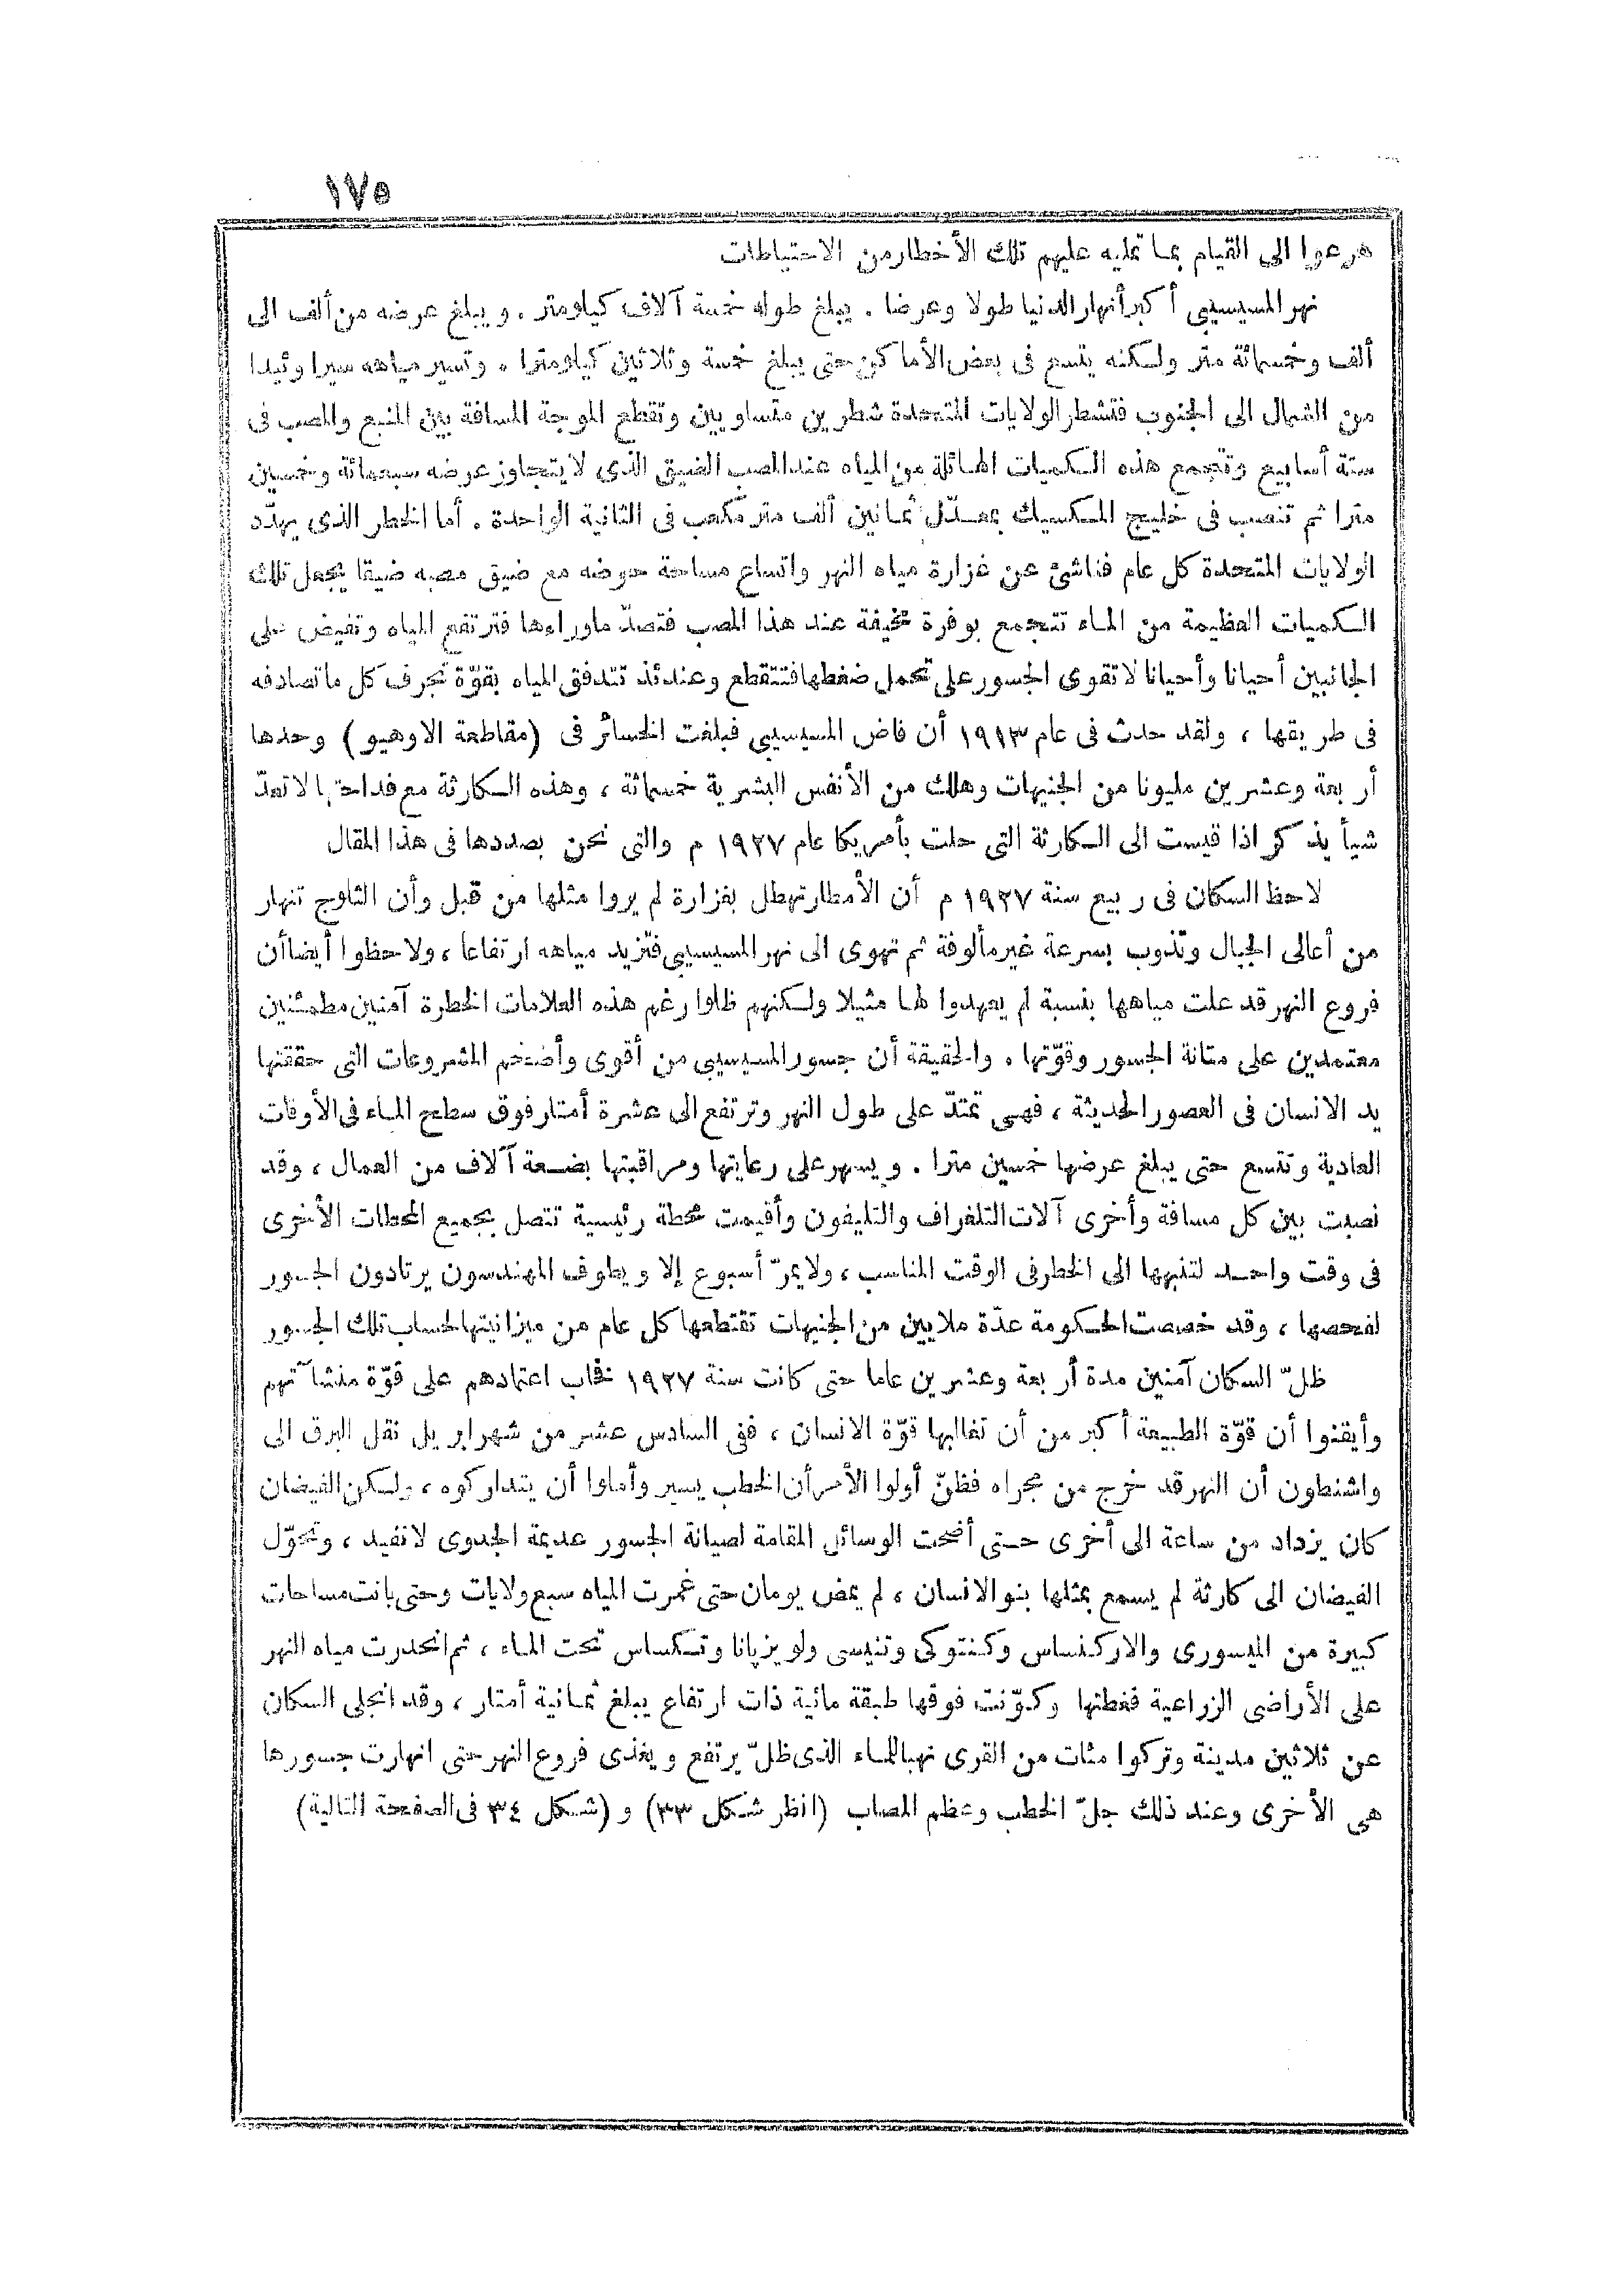 ١٧٥
هرعوا الى القيام بما تمليه عليهم تلك الأخطار من الاحتياطات
نهر المسيسيبى أكبر أنهار الدنيا طولا وعرضا . يبلغ طوله خمسة آلاف كيلومتر . ويبلغ عرضه من ألف الى
ألف وخمسمائة متر ولكنه يتسع فى بعض الأماكن حتى يبلغ خمسة وثلاثين كيلومترا . وتسير مياهه سيرا وئيدا
من الشمال الى الجنوب فتشطر الولايات المتحدة شطرين متساويين وتقطع الموجة المسافة بين المنبع والمصب فى
ستة أسابيع وتتجمع هذه الكميات الهائلة من المياه عند المصب الضيق الذى لا يتجاوز عرضه سبعمائة وخمسين
مترا ثم تنصب فى خليج المكسيك بمعدّل ثمانين ألف متر مكعب فى الثانية الواحدة . أما الخطر الذى يهدّد
الولايات المتحدة كل عام فناشئ عن غزارة مياه النهر واتساع مساحة حوضه مع ضيق مصبه ضيقا يجعل تلك
الكميات العظيمة من الماء تتجمع بوفرة مخيفة عند هذا المصب فتصدّ ماوراءها فترتفع المياه وتفيض على
الجانبين أحيانا وأحيانا لا تقوى الجسور على تحمل ضغطها فتتقطع وعندئذ تتدفق المياه بقوّة تجرف كل ماتصادفه
فى طريقها ، ولقد حدث فى عام ١٩١٣ أن فاض المسيسيبى فبلغت الخسائر فى (مقاطعة الاوهيو) وحدها
أربعة وعشرين مليونا من الجنيهات وهلك من الأنفس البشرية خمسمائة ، وهذه الكارثة مع فداحتها لا تعدّ
شيأ يذكر اذا قيست الى الكارثة التى حلت بأمريكا عام ١٩٢٧ م والتى نحن بصددها فى هذا المقال
لاحظ السكان فى ربيع سنة ١٩٢٧ م أن الأمطار تهطل بغزارة لم يروا مثلها من قبل وأن الثلوج تنهار
من أعالى الجبال وتذوب بسرعة غير مألوفة ثم تهوى الى نهر المسيسيبى فتزيد مياهه ارتفاعا ، ولاحظوا أيضا أن
فروع النهر قد علت مياهها بنسبة لم يعهدوا لها مثيلا ولكنهم ظلوا رغم هذه العلامات الخطرة آمنين مطمئنين
معتمدين على متانة الجسور وقوّتها . والحقيقة أن جسور المسيسيبى من أقوى وأضخم المشروعات التى حققتها
يد الانسان فى العصور الحديثة ، فهى تمتدّ على طول النهر وترتفع الى عشرة أمتار فوق سطح الماء فى الأوقات
العادية وتتسع حتى يبلغ عرضها خمسين مترا . ويسهر على رعايتها ومراقبتها بضعة آلاف من العمال ، وقد
نصبت بين كل مسافة وأخرى آلات التلغراف والتليفون وأقيمت محطة رئيسية تتصل بجميع المحطات الأخرى
فى وقت واحد لتنبهها الى الخطر فى الوقت المناسب ، ولا يمرّ أسبوع إلا ويطوف المهندسون يرتادون الجسور
لفحصها ، وقد خصصت الحكومة عدّة ملايين من الجنيهات تقتطعها كل عام من ميزانيتها لحساب تلك الجسور
ظلّ السكان آمنين مدة أربعة وعشرين عاما حتى كانت سنة ١٩٢٧ نخاب اعتمادهم على قوّة منشآتهم
وأيقنوا أن قوّة الطبيعة أكبر من أن تغالبها قوّة الانسان ، ففى السادس عشر من شهر ابريل نقل البرق الى
واشنطون أن النهر قد خرج من مجراه فظنّ أولوا الأمر أن الخطب يسير وأملوا أن يتداركوه ، ولكن الفيضان
كان يزداد من ساعة الى أخرى حتى أضحت الوسائل المقامة لصيانة الجسور عديمة الجدوى لاتفيد ، وتحوّل
الفيضان الى كارثة لم يسمع بمثلها بنو الانسان ، لم يمض يومان حتى غمرت المياه سبع ولايات وحتى باتت مساحات
كبيرة من الميسورى والاركنساس وكنتوكى وتنيسى ولويزيانا وتكساس تحت الماء ، ثم انحدرت مياه النهر
على الأراضى الزراعية فغطتها وكوّنت فوقها طبقة مائية ذات ارتفاع يبلغ ثمانية أمتار ، وقد انجلى السكان
عن ثلاثين مدينة وتركوا مئات من القرى نهبا للماء الذى ظلّ يرتفع ويغذى فروع النهر حتى انهارت جسورها
هى الأخرى وعند ذلك جلّ الخطب وعظم المصاب (انظر شكل ٣٣) و (شكل ٣٤ فى الصفحة التالية)